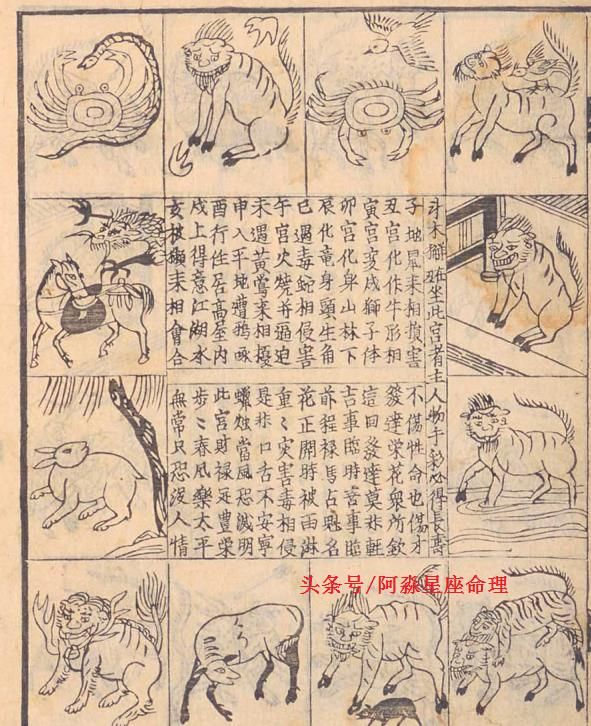 斗木獬坐此宮者主人物手彩必得長壽
子地鼠來相損害
不傷性命也傷才
丑宮化作牛形相
發達荣花衆所欽
寅宮变成獅子体
這回發達莫非軽
卯宮化身山林下
吉事臨時喜事臨
辰化竜身頭生角
前程禄馬占魁名
巳遇毒蛇相侵害
花正開時被雨淋
午宮火燒并逼迫
重〻災害毒相侵
未遇黃鶯來相擾
是非口舌不安寧
申入平地遭鴉啄
蠟燭當風恐滅明
酉行住居高屋內
此宮財禄足豊荣
戌上得意江湖水
步〻春风樂太平
亥被來相會合
無常只恐沒人情
头条号/阿淼星座命理